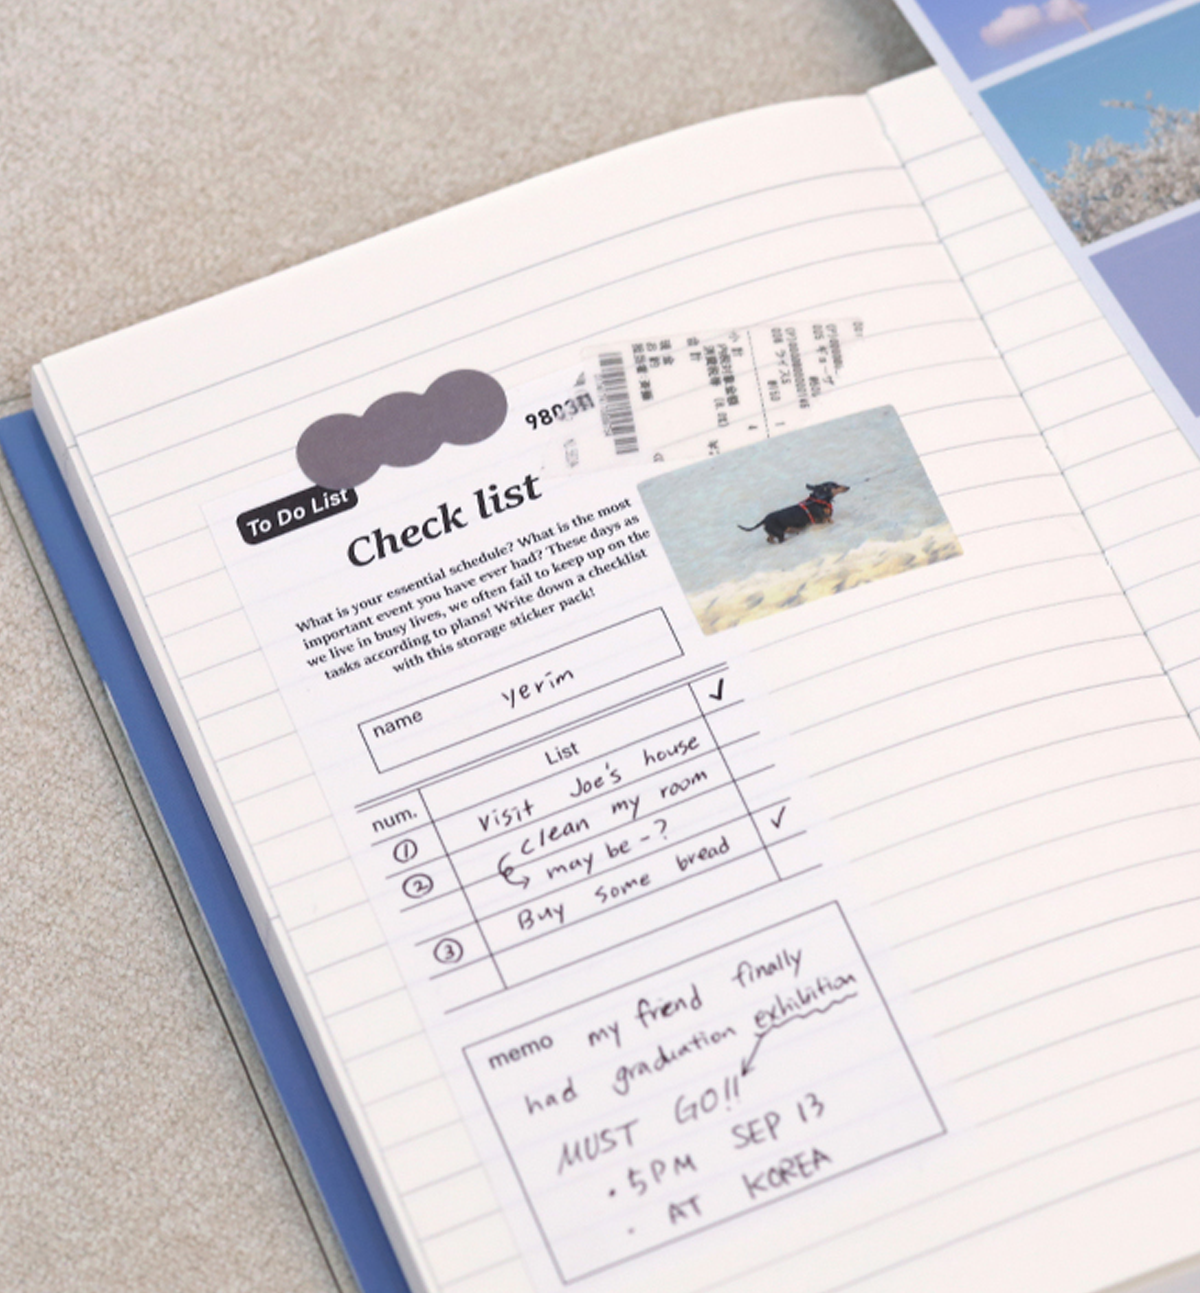 To Do List
Check list
What is your essential schedule? What is the most
important event you have ever had? These days as
we live in busy lives, we often fail to keep up on the
tasks according to plans! Write down a checklist
with this storage sticker pack!
name yerim
num. List ✓
① Visit Joe's house
② clean my room
may be - ? ✓
③ Buy some bread
memo my friend finally
had graduation exhibition
MUST GO!!
· 5PM SEP 13
· AT KOREA
小計
合計